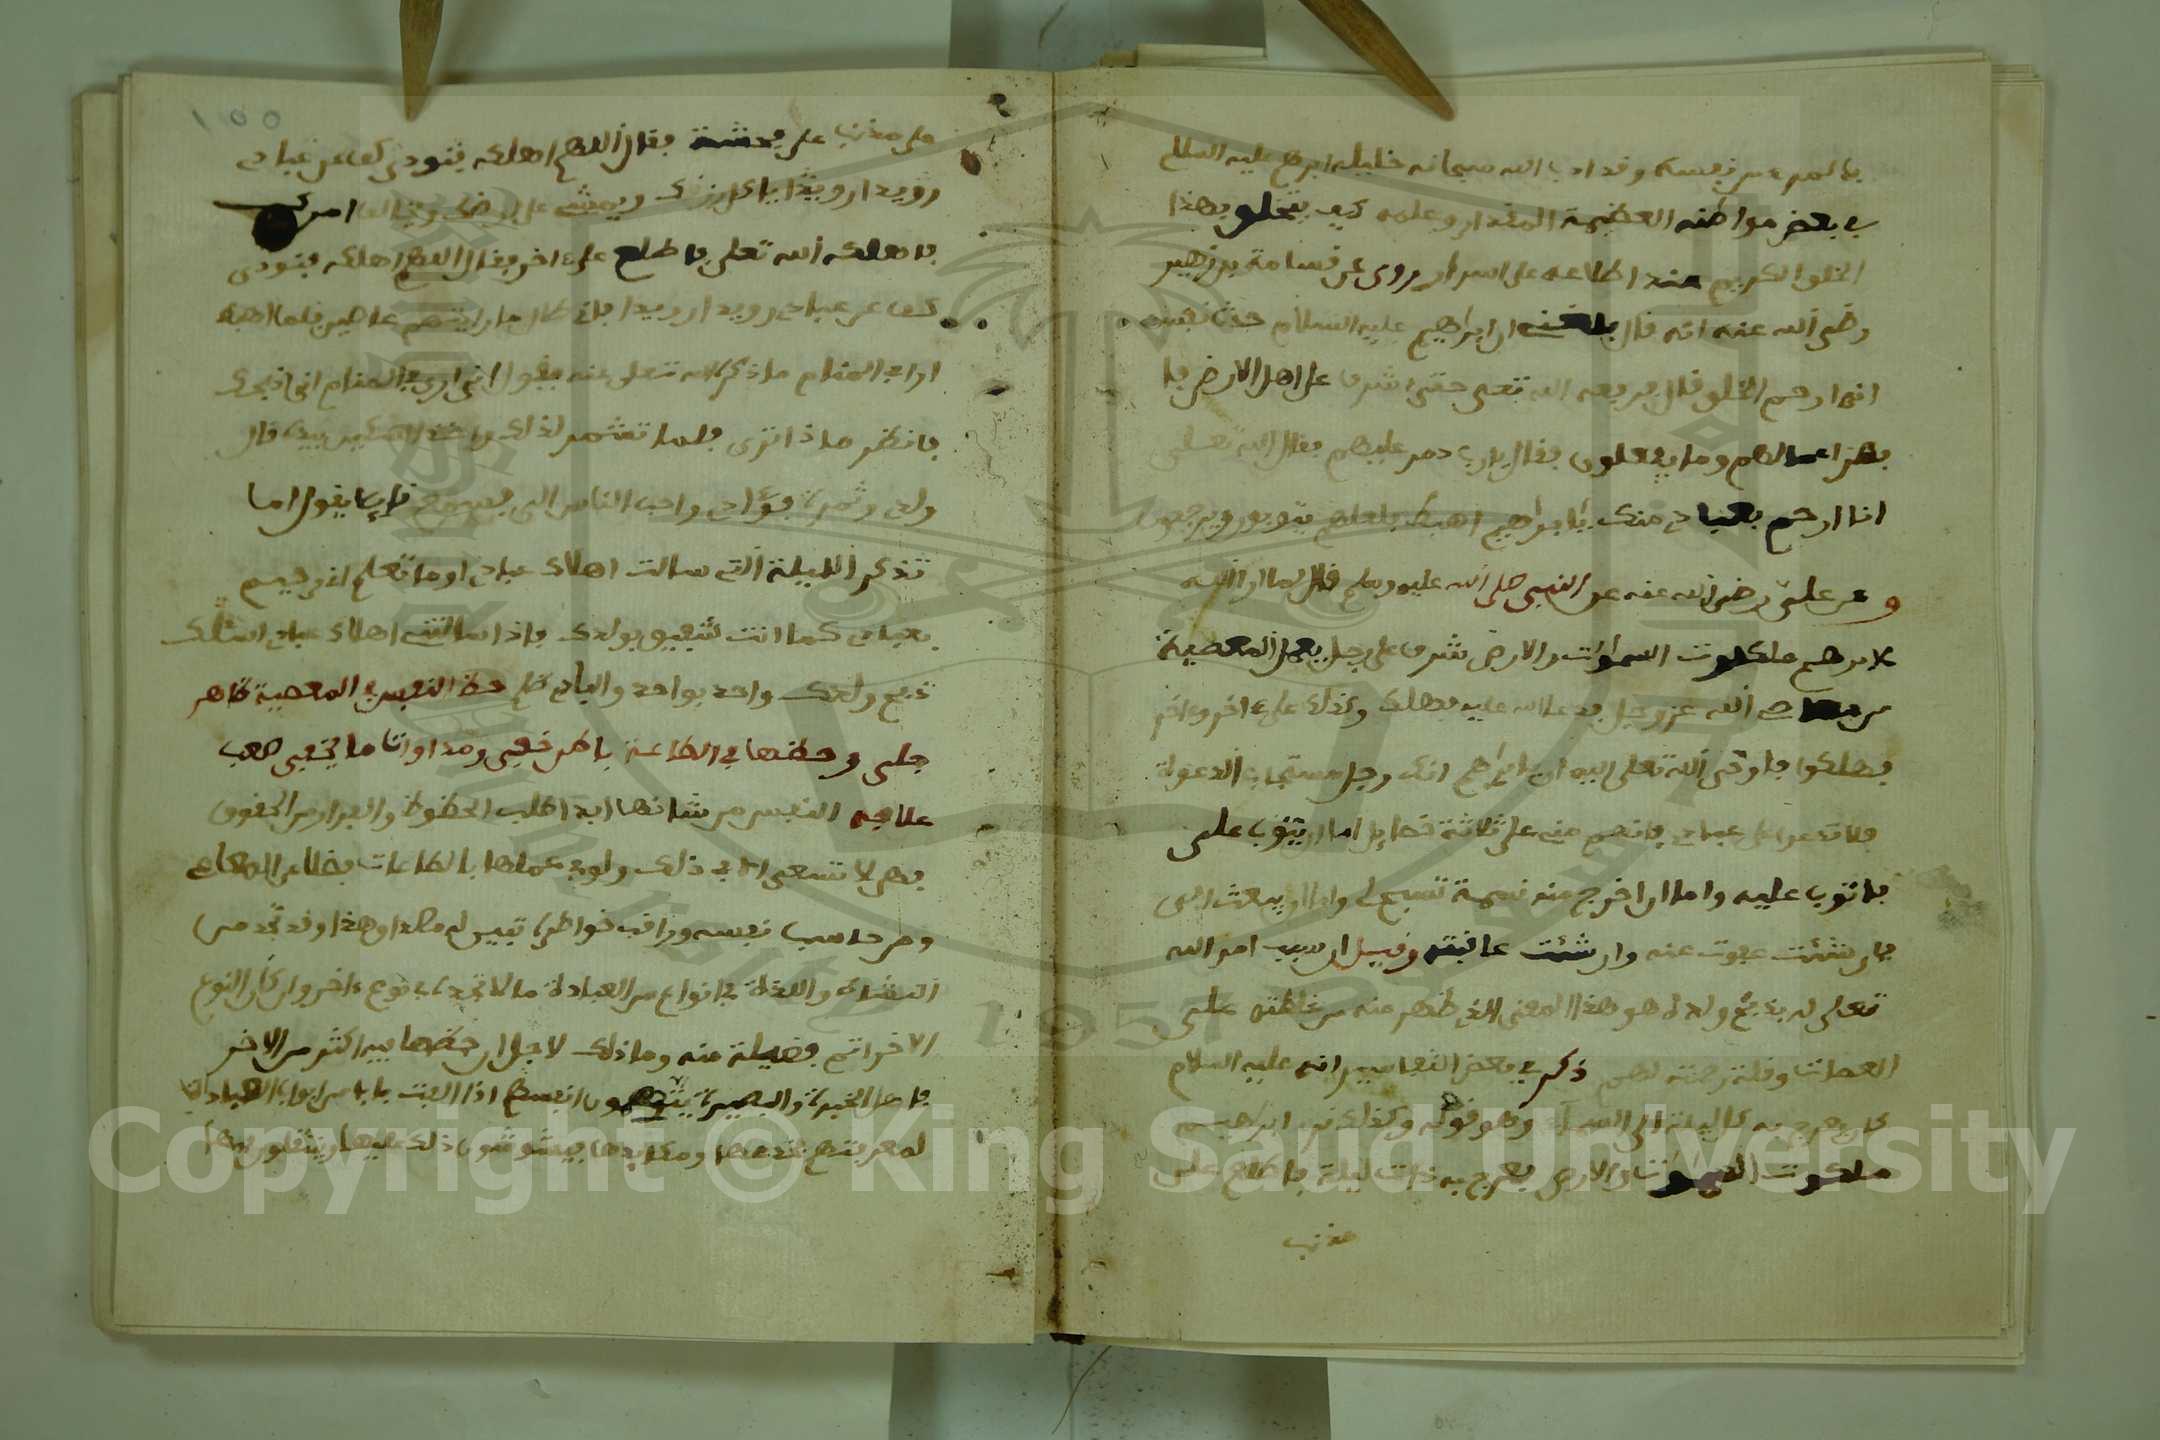 بالمرء من نفسه وقد ادب الله سبحانه خليله ابرهيم عليه السلام
في بعض مواطنه العظيمة المقدار وعلمه كيف يتخلق بهذا
الخلق الكريم عند اطلاعه على اسرار روى عن قسامة بن زهير
رضي الله عنه انه قال بلغني ان ابراهيم عليه السلام حدث نفسه
انه ارحم الخلق قال فرفعه الله تعلى حتى اشرف على اهل الارض فا
بصر اعمالهم وما يفعلون فقال يارب دمر عليهم فقال الله تعلى
انا ارحم بعبادي منك يا ابراهيم اهبط فلعلهم يتوبون ويرجعون
وعن علي رضي الله عنه عن النبي صلى الله عليه وسلم قال لما ارى الله
لابرهيم ملكوت السموات والارض اشرف على رجل يعمل المعصية
من معاصي الله عز وجل فدعا الله عليه فهلك وكذلك على اخر واخر
فهلكوا فاوحى الله تعلى اليه ان يا ابراهيم انك رجل مستجاب الدعوة
فلا تدعوا على عبادي فانهم مني على ثلاثة خصايل اما ان يتوب علي
فاتوب عليه واما ان اخرج منه نسمة تسبح لي واما ان يبعث الي
فان شئت عفوت عنه وان شئت عاقبته وقيل ان سبب امر الله
تعلى له بذبح ولده هو هذا المعنى الذي ظهر منه من غلظته على
العصاة وقلة رحمته لهم ذكر في بعض التفاسير انه عليه السلام
كان يعرج به كل ليلة الى السماء وهو قوله وكذلك نري ابرهيم
ملكوت السموات والارض فعرج به ذات ليلة فاطلع على
مذنب
100
على مذنب على فاحشة فقال اللهم اهلكه فنودي كف عن عبادي
رويدا رويدا ياكل رزقك ويمشي على ارضك ويخالف امرك
فاهلكه الله تعلى فاطلع على اخر فقال اللهم اهلكه فنودي
كف عن عبادي رويدا رويدا فاني طال ما رايتهم عاصين فلما اهبط
اراه في المنام ما ذكر الله تعلى عنه بقوله اني ارى في المنام اني اذبحك
فانظر ماذا ترى فلما تشمر لذلك واخذ السكين بيده قال
ولدي وثمرة فؤادي واحب الناس الي فسمع قايلا يقول اما
تذكر الليلة التي سالت اهلاك عبادي اوما تعلم اني رحيم
بعبادي كما انت شفيق بولدك فاذا سالتني اهلاك عبادي اسئلك
ذبح ولدك واحد بواحد والبادي اظلم حظ النفس في المعصية ظاهر
جلي وحظها في الطاعة باطن خفي ومداواة ما يخفى صعب
علاجه النفس من شانها ابدا طلب الحظوظ والفرار من الحقوق
فهي لا تسعى الا في ذلك ولو في عملها بالطاعات فضلا عن المعاصي
ومن حاسب نفسه وراقب خواطره تبين له مكر هذا وقد تجد من
النشاط واللذة في انواع من العبادة ما لا تجده في نوع اخر وان كان النوع
الاخر اتم فضيلة منه وما ذلك الا لاجل ان حظها فيه اكثر من الاخر
فاهل الخبرة والبصيرة يتهمون انفسهم اذا الفت بابا من ابواب العبادة
لمعرفتهم بخدعها ومكايدها فيشوشون ذلك عليها وينتقلون بها